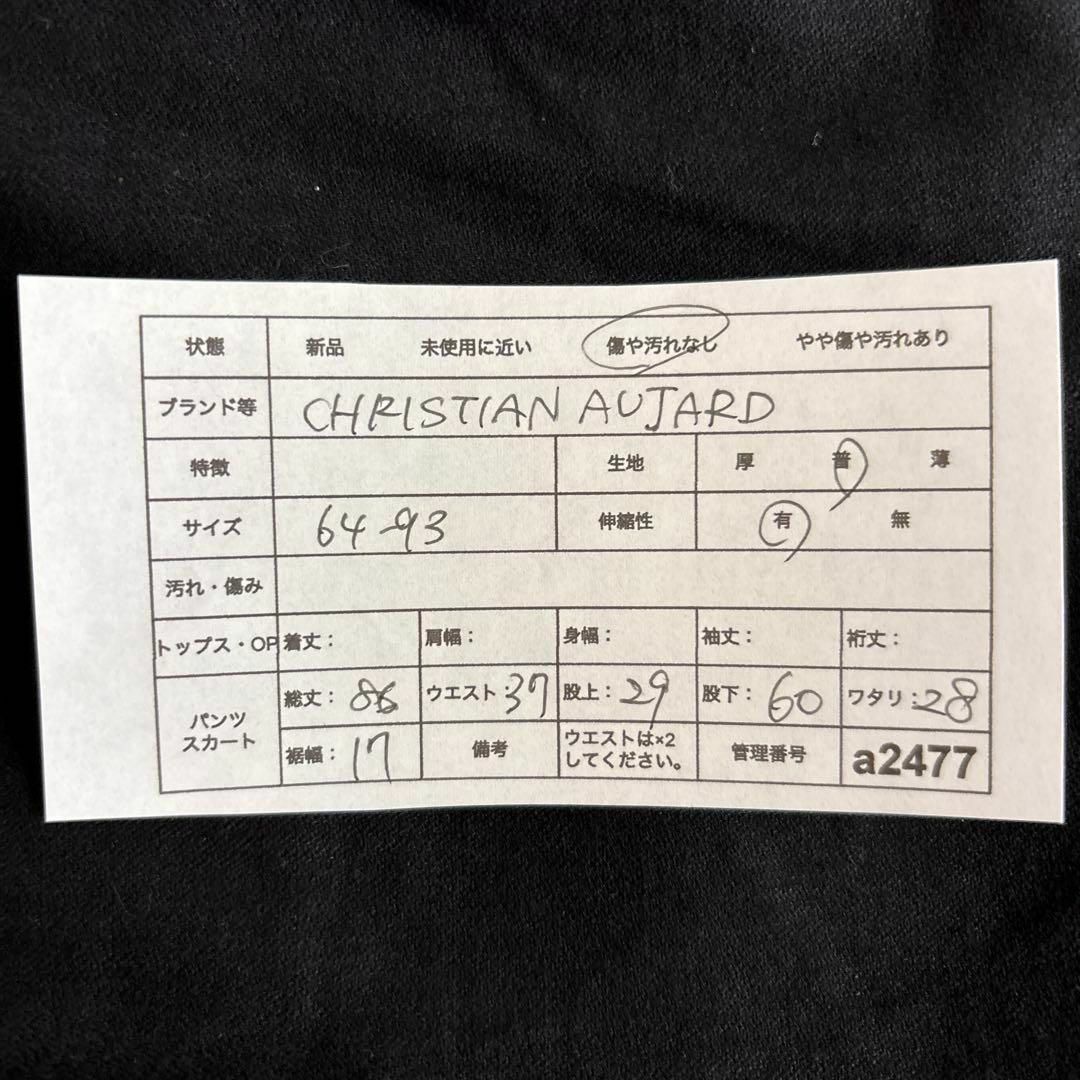 状態 新品 未使用に近い 傷や汚れなし やや傷や汚れあり
ブランド等 CHRISTIAN AUJARD
特徴 生地 厚 普 薄
サイズ 64-93 伸縮性 有 無
汚れ・傷み
トップス・OP 着丈: 肩幅: 身幅: 袖丈: 裄丈:
パンツ
スカート
総丈: 86 ウエスト: 37 股上: 29 股下: 60 ワタリ: 28
裾幅: 17 備考 ウエストは×2
してください。 管理番号 a2477